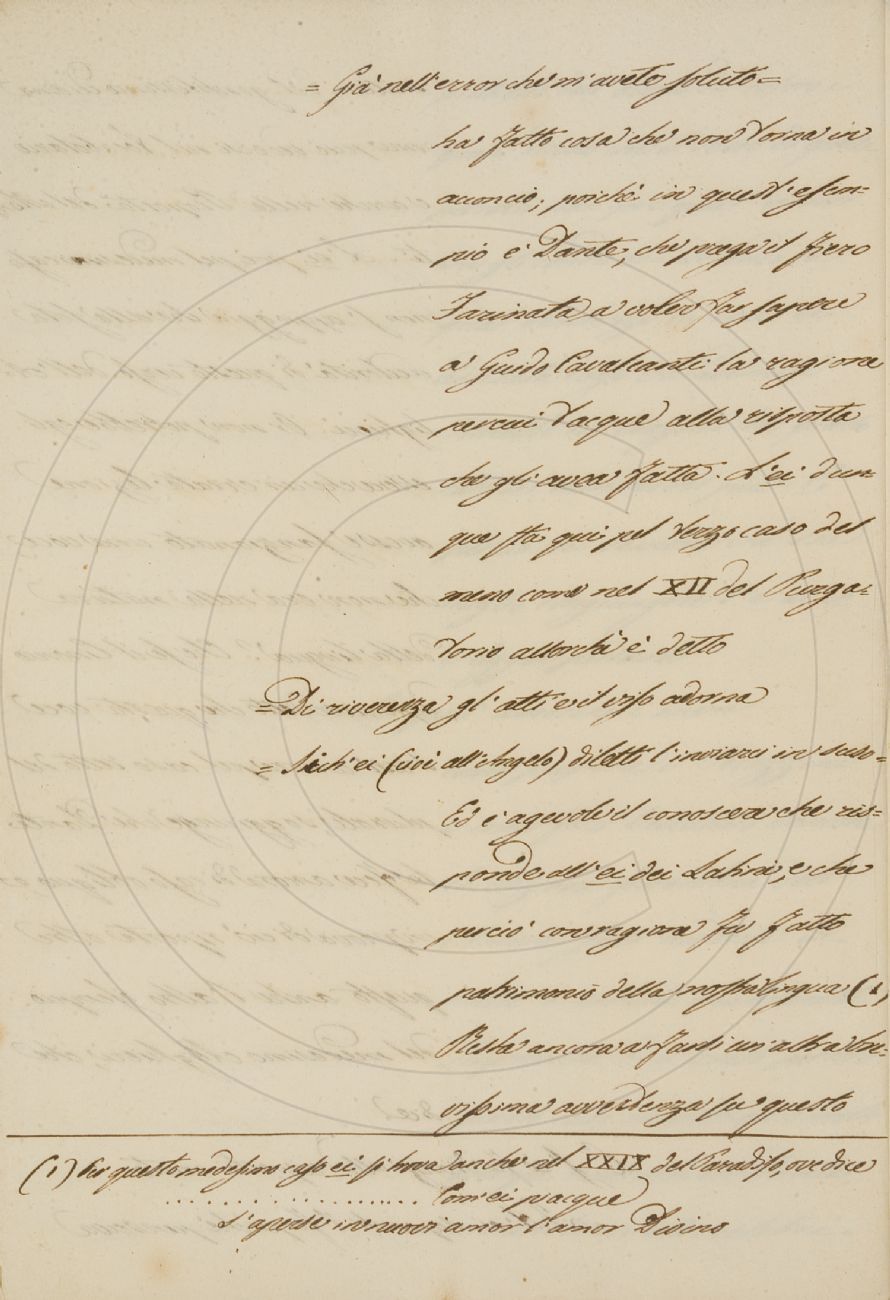 = Già nell'error che m'avete soluto =
ha fatto cosa che non torna in
acconcio; poichè in quest'esem-
pio è Dante, che prega il fiero
Farinata a voler far sapere
a Guido Cavalcanti la ragione
per cui tacque alla risposta
che gli avea fatta. L'ei dun-
que sta qui pel terzo caso del
meno come nel XII del Purga-
torio allorchè è detto
= Di riverenza gli atti e il viso adorna
= Sich'ei (cioè all'Angelo) diletti l'inviarci in suso =
Ed è agevole il conoscere che ris-
ponde all'ei dei Latini, e che
perciò con ragione fu fatto
patrimonio della nostra lingua (1)
Resta ancora a farsi un'altra bre-
vissima avvertenza su questo
(1) Per questo medesimo caso ei si trova anche nel XXIX del Paradiso, ove dice
. . . . . . . . . . . . . . . . . . . Com'ei piacque
S'aperse in nuovi amor l'amor Divino